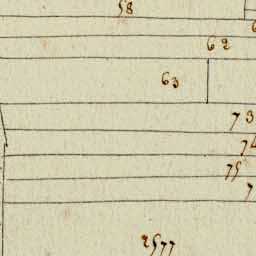 58
62
63
73
74
75
7
2577